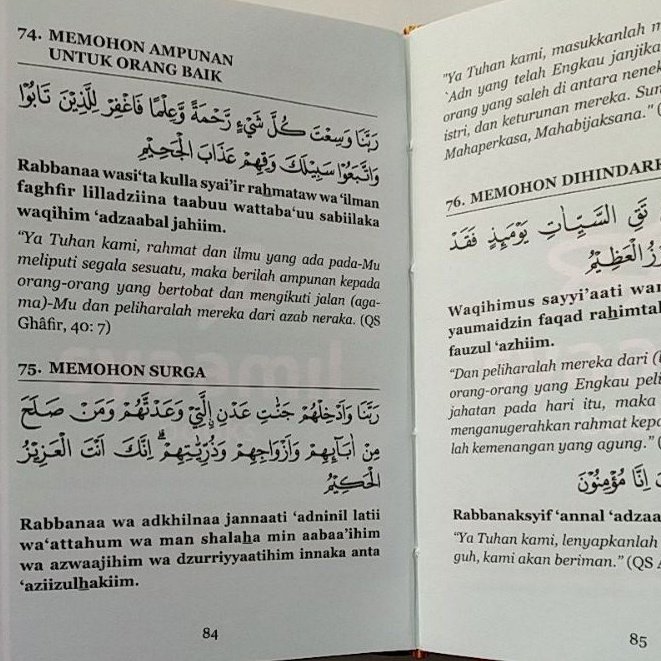 74. MEMOHON AMPUNAN
UNTUK ORANG BAIK
رَبَّنَا وَسِعْتَ كُلَّ شَيْءٍ رَّحْمَةً وَّعِلْمًا فَاغْفِرْ لِلَّذِيْنَ تَابُوْا
وَاتَّبَعُوْا سَبِيْلَكَ وَقِهِمْ عَذَابَ الْجَحِيْمِ
Rabbanaa wasi'ta kulla syai'ir rahmataw wa 'ilman
faghfir lilladziina taabuu wattaba'uu sabiilaka
waqihim 'adzaabal jahiim.
"Ya Tuhan kami, rahmat dan ilmu yang ada pada-Mu
meliputi segala sesuatu, maka berilah ampunan kepada
orang-orang yang bertobat dan mengikuti jalan (aga-
ma)-Mu dan peliharalah mereka dari azab neraka. (QS
Ghâfir, 40: 7)
75. MEMOHON SURGA
رَبَّنَا وَاَدْخِلْهُمْ جَنّٰتِ عَدْنِ ِۨالَّتِيْ وَعَدْتَّهُمْ وَمَنْ صَلَحَ
مِنْ اٰبَاۤىِٕهِمْ وَاَزْوَاجِهِمْ وَذُرِّيّٰتِهِمْ ۗ اِنَّكَ اَنْتَ الْعَزِيْزُ
الْحَكِيْمُ
Rabbanaa wa adkhilnaa jannaati 'adninil latii
wa'attahum wa man shalaha min aabaa'ihim
wa azwaajihim wa dzurriyyaatihim innaka anta
'aziizulhakiim.
84
"Ya Tuhan kami, masukkanlah
'Adn yang telah Engkau janjika
orang yang saleh di antara nenek
istri, dan keturunan mereka. Sun
Mahaperkasa, Mahabijaksana." (
76. MEMOHON DIHINDARK
تَقِ السَّيِّاٰتِ يَوْمَىِٕذٍ فَقَدْ
الْعَظِيْمُ
Waqihimus sayyi'aati wa
yaumaidzin faqad rahimta
fauzul 'azhiim.
"Dan peliharalah mereka dari (
orang-orang yang Engkau peli
jahatan pada hari itu, maka
menganugerahkan rahmat kepa
lah kemenangan yang agung." (
اِنَّا مُؤْمِنُوْنَ
Rabbanaksyif 'annal 'adzaa
"Ya Tuhan kami, lenyapkanlah
guh, kami akan beriman." (QS
85